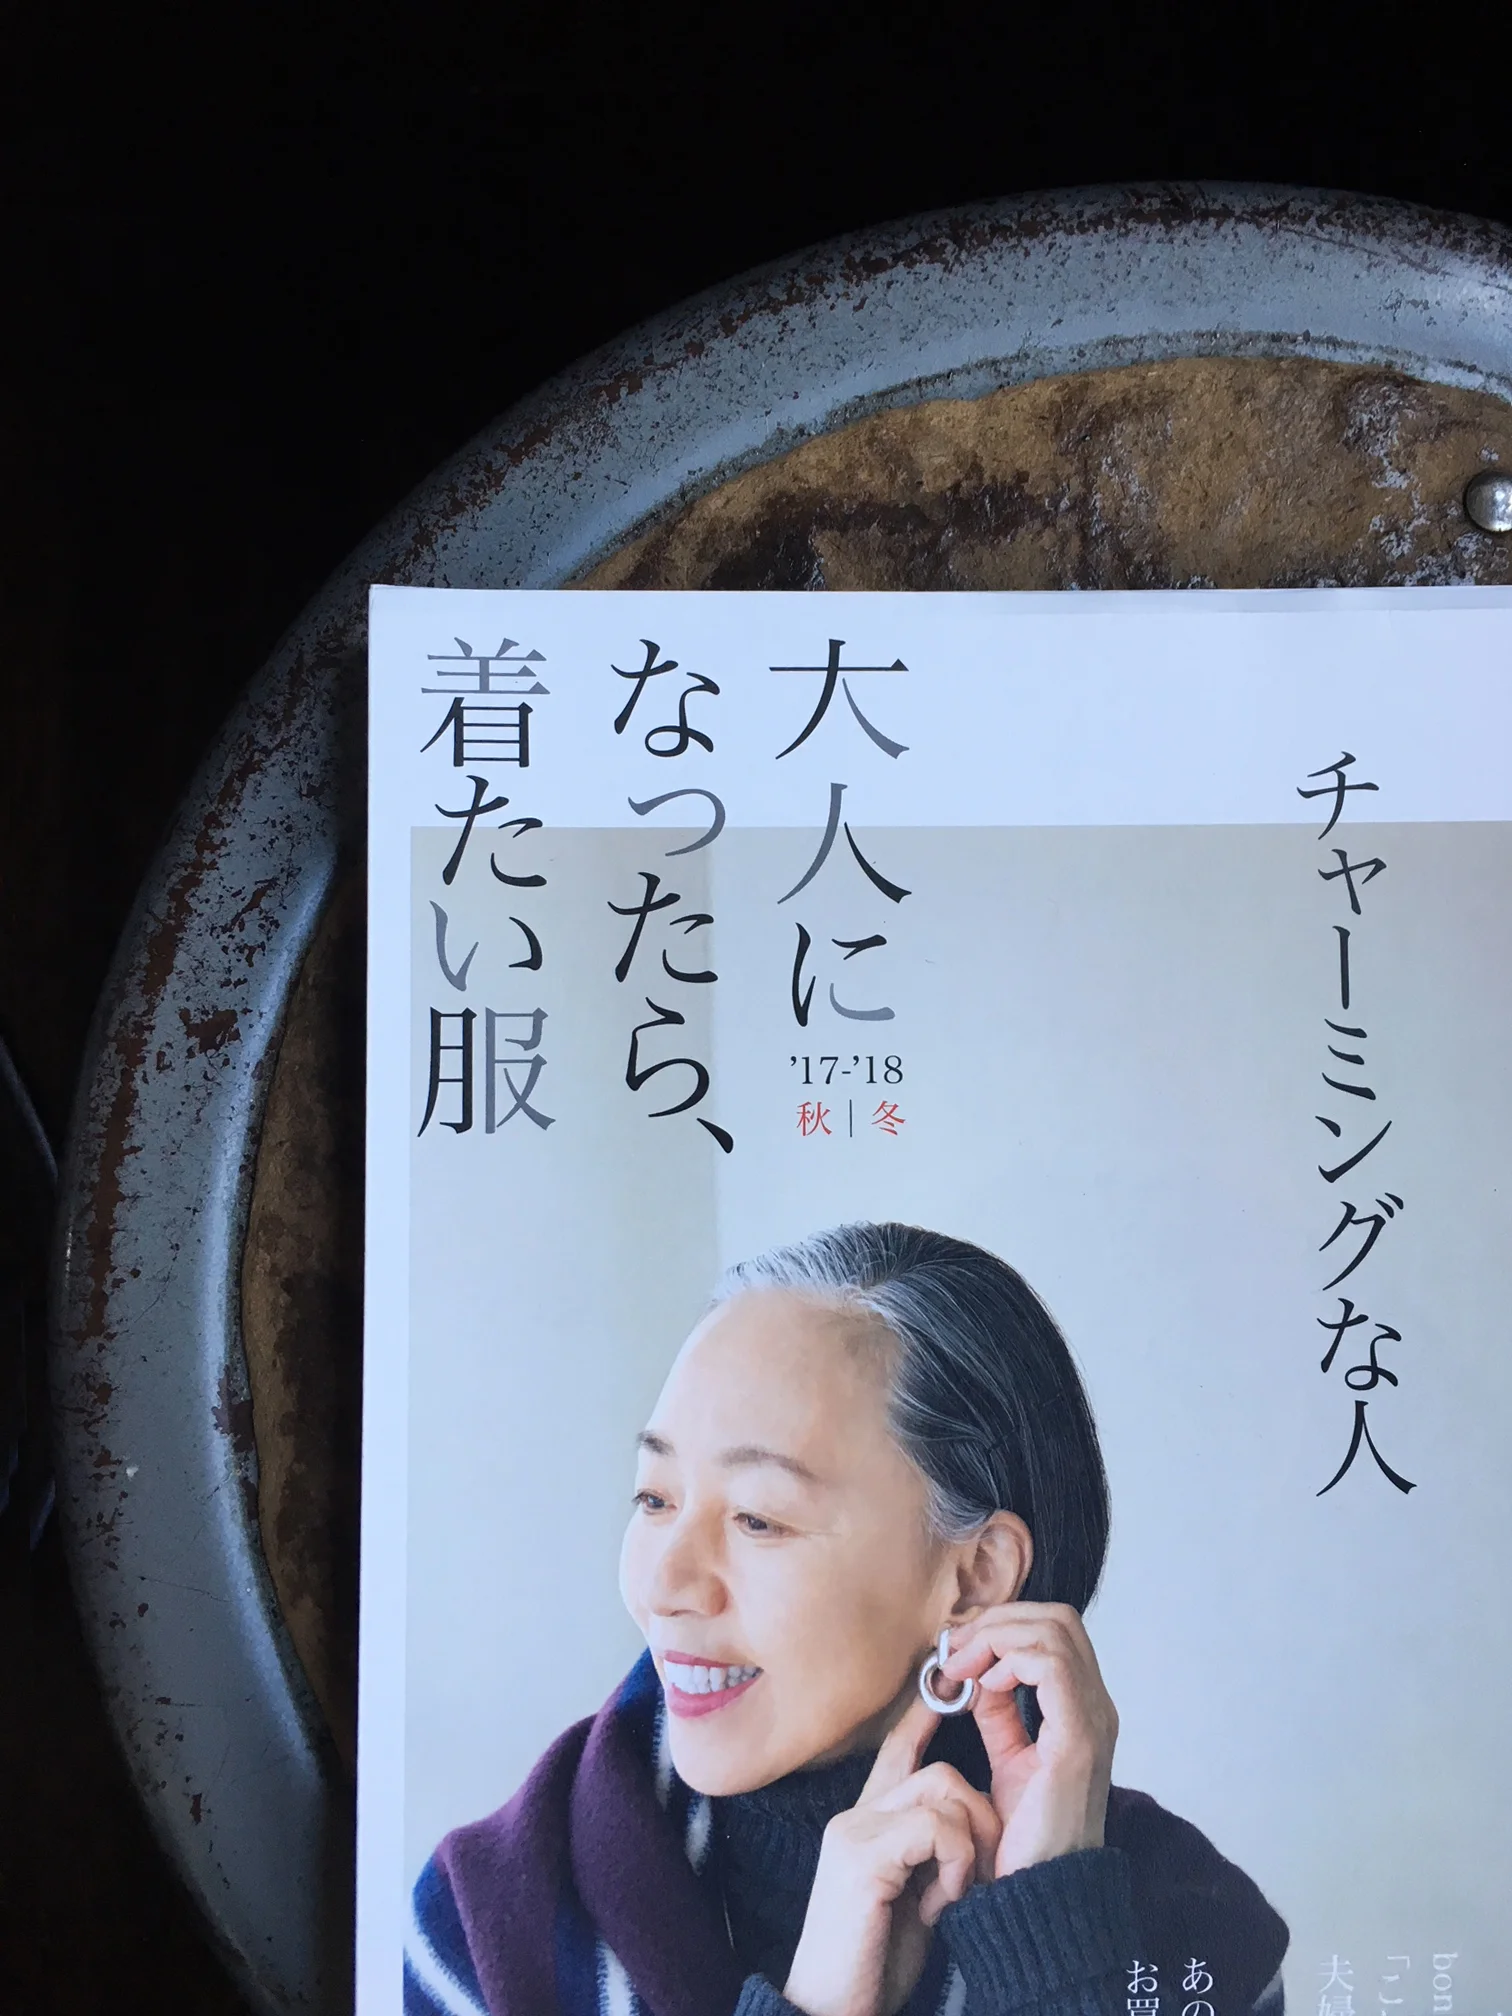 チャーミングな人
大人に
なったら、
着たい服
’17-’18
秋|冬
bon
「こ
夫婦
あの
お買